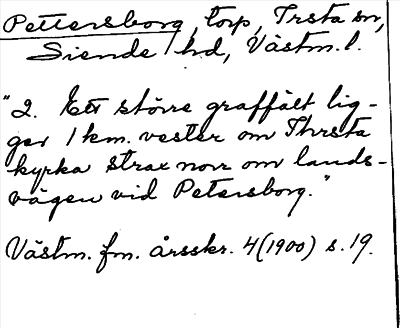 Pettersborg, torp, Irsta sn,
Siende hd, Västm. l.
"2. Ett större graffält lig-
ger 1 km. vester om Thrsta
kyrka strax norr om lands-
vägen vid Petersborg."
Västm. fm. årsskr. 4 (1900) s. 19.